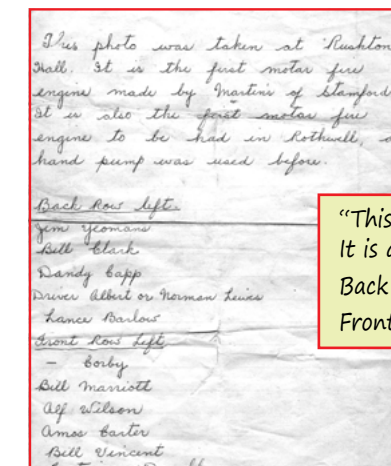 This photo was taken at Rushton
Hall. It is the first motor fire
engine made by Martins of Stamford
It is also the first motor fire
engine to be had in Rothwell, a
hand pump was used before.
Back Row left.
Jim Yeomans
Bill Clark
Dandy Capp
Driver Albert or Norman Lewis
Lance Barlow
Front Row Left
- Corby
Bill Marriott
Alf Wilson
Amos Carter
Bill Vincent
"This
It is a
Back
Front